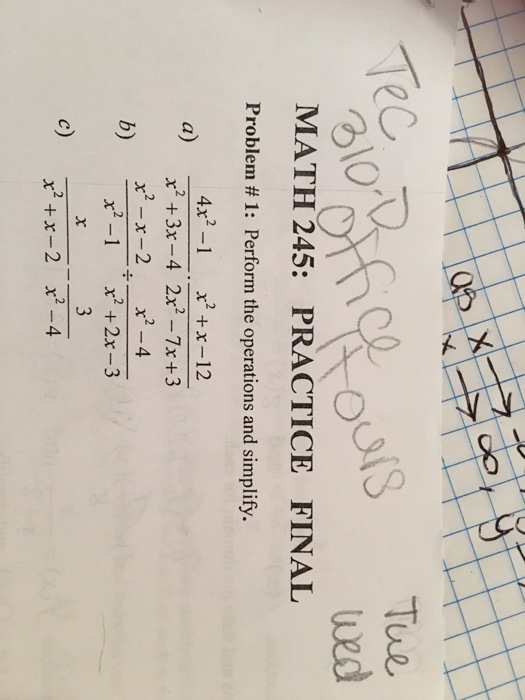 as x → 
x → ∞, y
Tue
Tec Wed
310.D Office Hours
MATH 245: PRACTICE FINAL
Problem # 1: Perform the operations and simplify.
a) \frac{4x² − 1}{x² + 3x − 4} · \frac{x² + x − 12}{2x² − 7x + 3}
b) \frac{x² − x − 2}{x² − 1} ÷ \frac{x² − 4}{x² + 2x − 3}
c) \frac{x}{x² + x − 2} − \frac{3}{x² − 4}